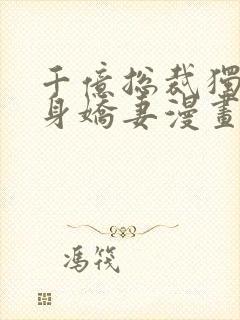 千億總裁獨
身嬌妻漫畫
馮筏